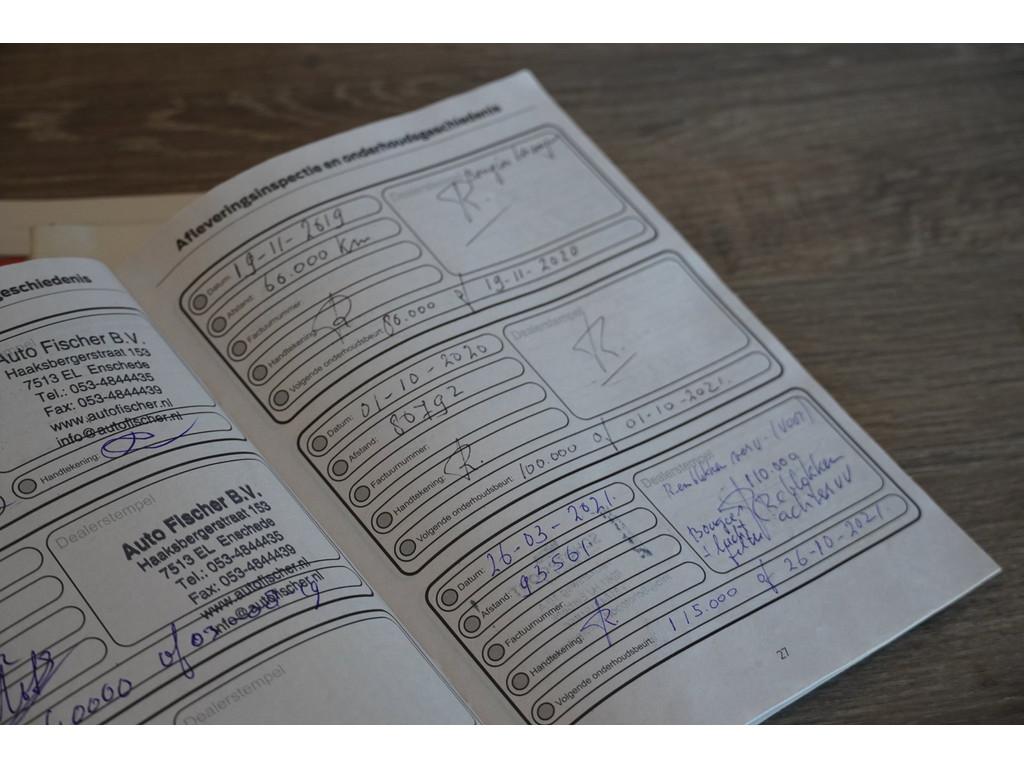 geschiedenis
Auto Fischer B.V.
Haaksbergerstraat 153
7513 EL Enschede
Tel.: 053-4844435
Fax: 053-4844439
www.autofischer.nl
info@autofischer.nl
Handtekening:
Dealerstempel
Auto Fischer B.V.
Haaksbergerstraat 153
7513 EL Enschede
Tel.: 053-4844435
Fax: 053-4844439
www.autofischer.nl
info@autofischer.nl
Dealerstempel
Afleveringsinspectie en onderhoudsgeschiedenis
Datum: 19-11-2019
Afstand: 66.000 km
Factuurnummer:
Handtekening: R
Volgende onderhoudsbeurt: 86.000 of 19-11-2020
Dealerstempel
R.
Datum: 01-10-2020
Afstand: 80792
Factuurnummer:
Handtekening: R.
Volgende onderhoudsbeurt: 100.000 of 01-10-2021.
Dealerstempel
R.
Datum: 26-03-2021.
Afstand: 93561.
Factuurnummer:
Handtekening: R
Volgende onderhoudsbeurt: 115.000 of 26-10-2021.
Dealerstempel
Remblokken (voor)
110.000
Remblokken
27